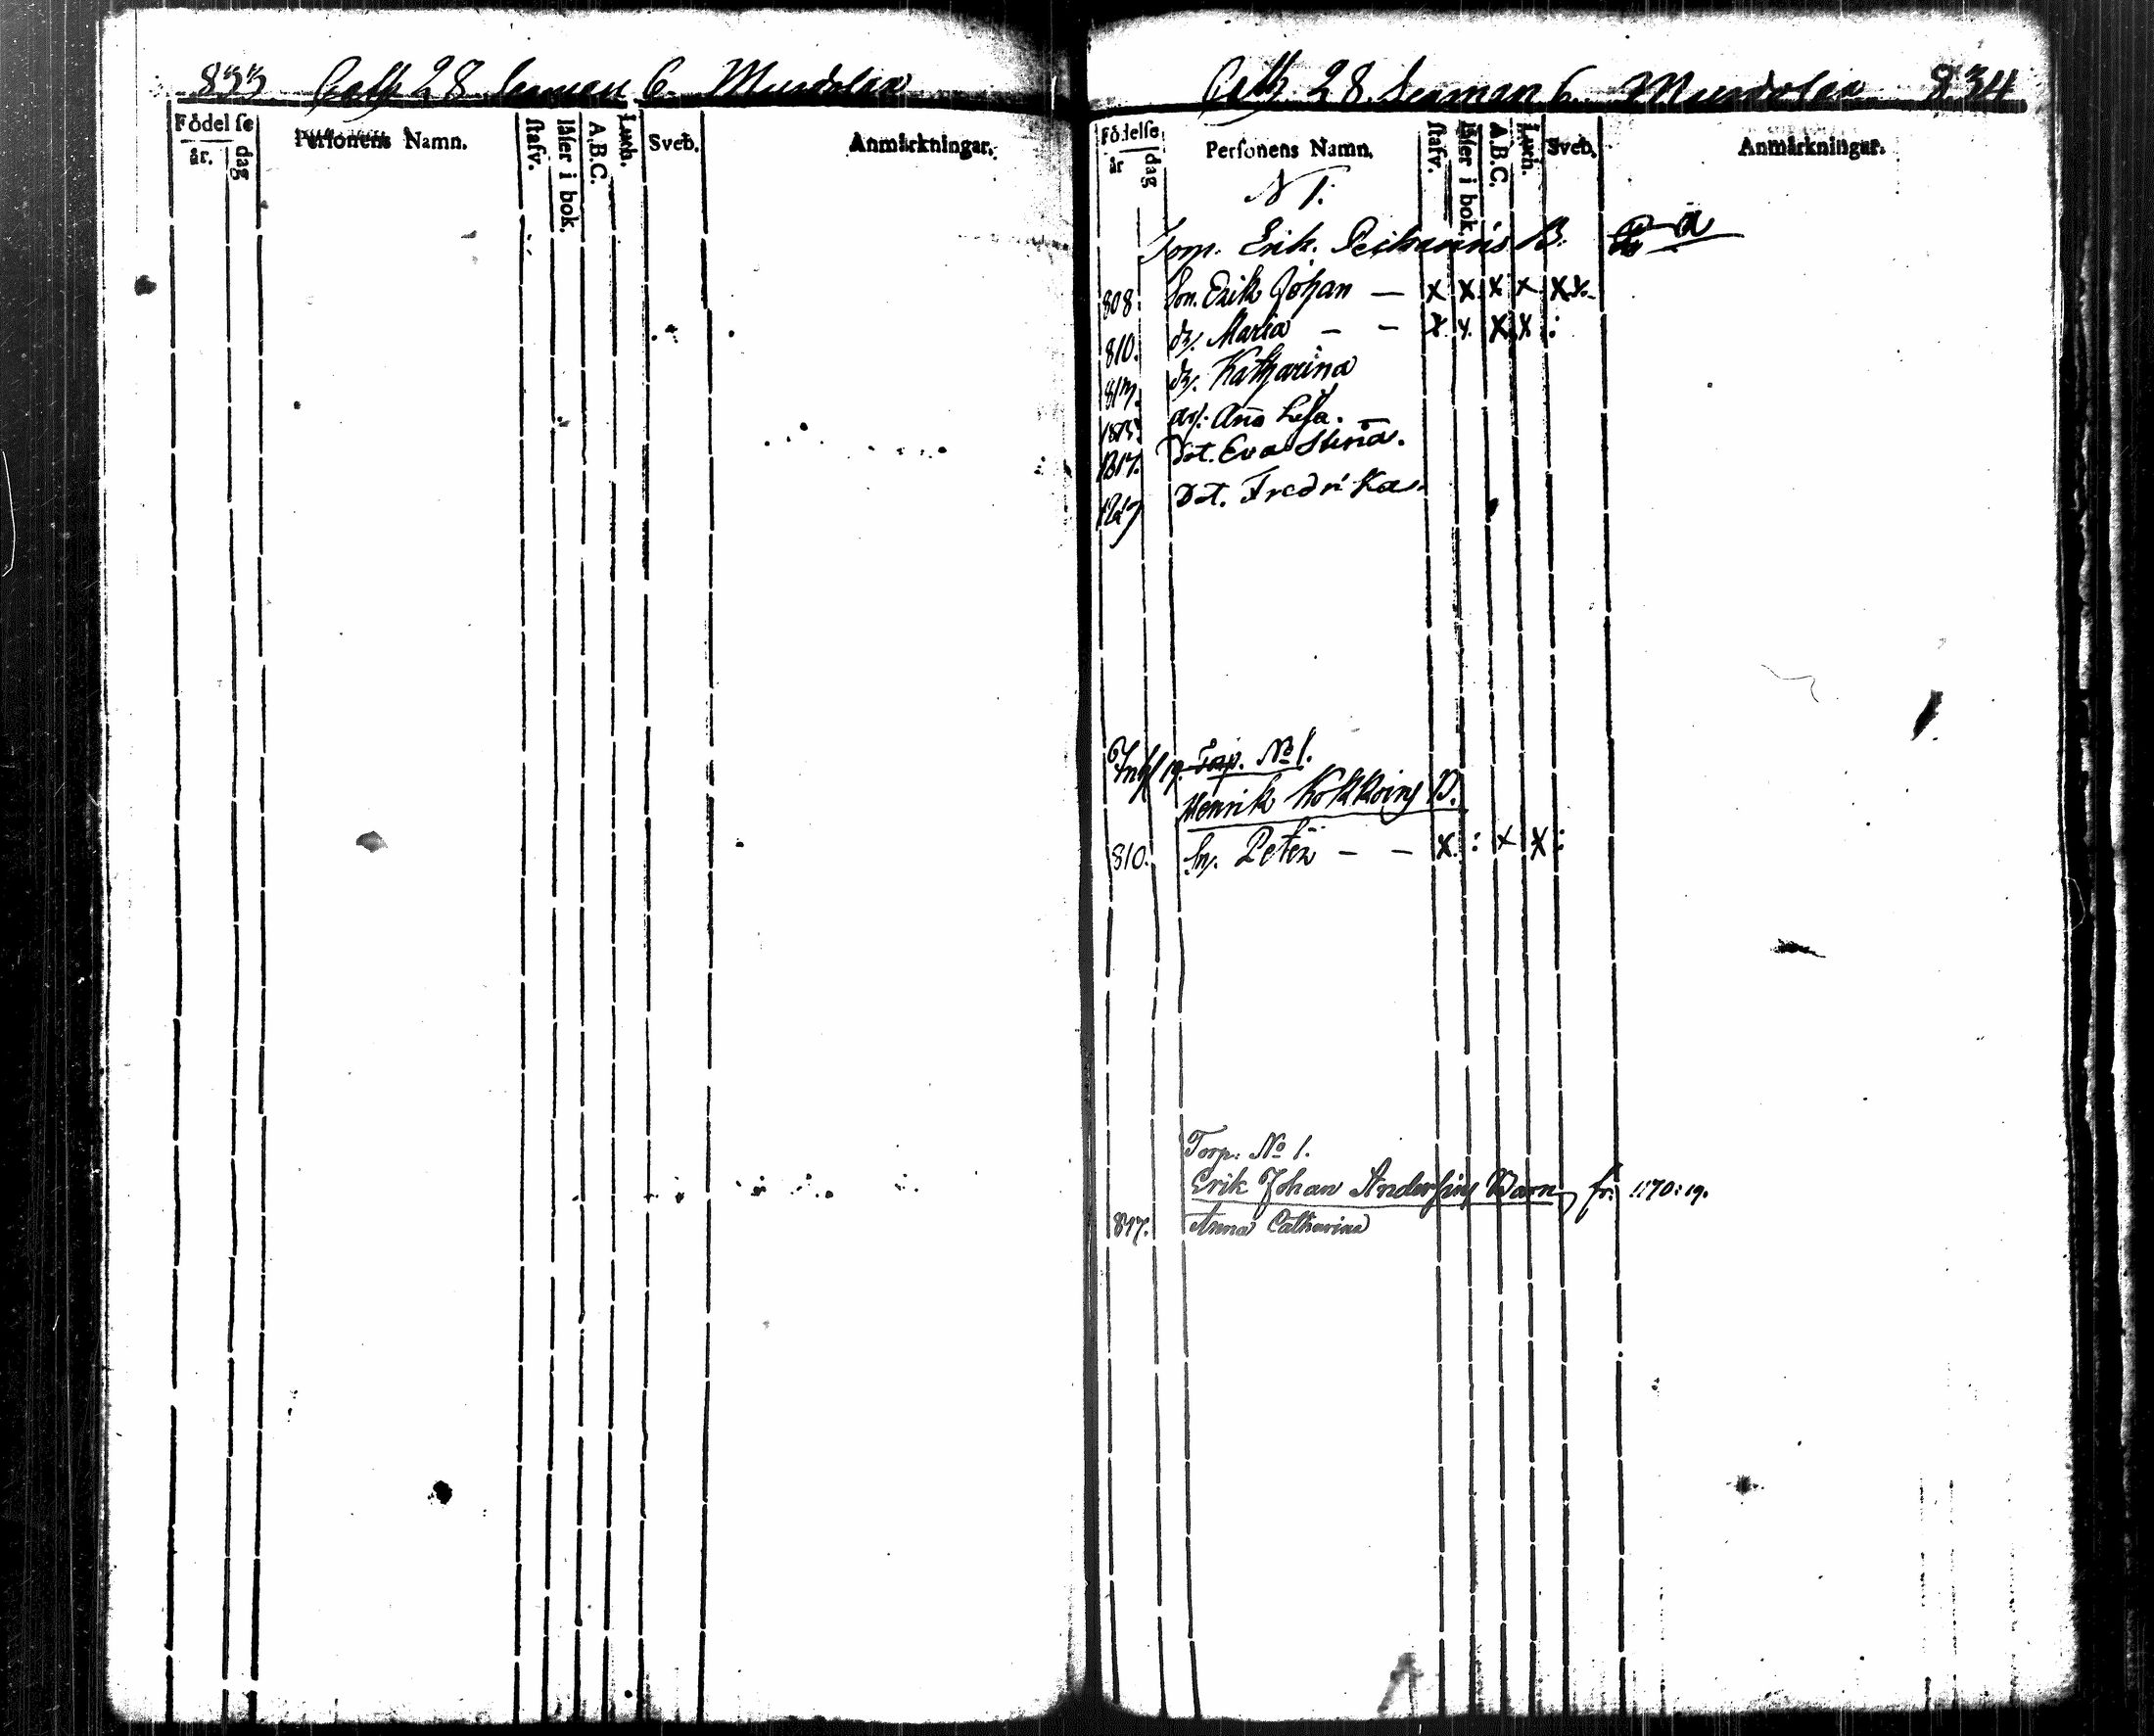 833. Cath 28 Lenman 6. Mursolax
Födelse
år. dag
Personens Namn.
stafv.
läser i bok.
A.B.C.
Luth.
Sveb.
Anmärkningar.
Cath 28 Lenman 6. 834
Födelse
år dag
Personens Namn.
stafv.
läser i bok.
A.B.C.
Luth.
Sveb.
Anmärkningar.
N 1.
Torp. Erik B.
808. Son. Erik Johan — x x x x x x.
810. dr. Maria — — x x. x x :
813. dr. Katharina
1815. dr. Ana Lisa. —
1817. Dot. Eva Stina.
Dot. Fredrika.
Inh. 19. Torp. No 1.
Henrik B.
810. Petter — — x. : x x :
Torp. No 1.
Erik Johan Anderssins Barn fr: 1170:19.
847. Anna Catharina